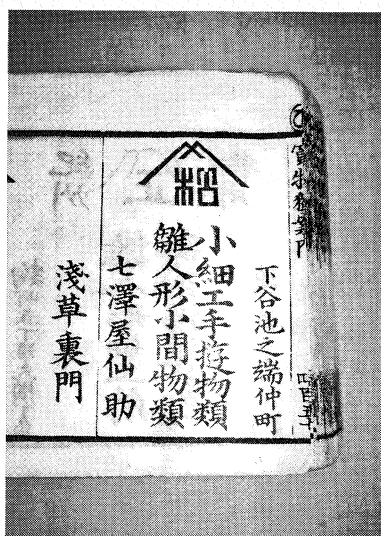 下谷池之端仲町
松
小細工手遊物類
雛人形小間物類
七澤屋仙助
淺草裏門